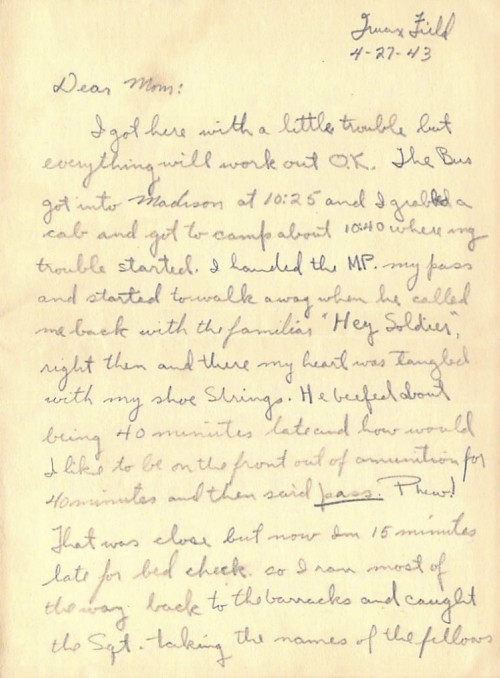 Truax Field
4-27-43
Dear Mom:
I got here with a little trouble but
everything will work out O.K. The Bus
got into Madison at 10:25 and I grabbed a
cab and got to camp about 10:40 where my
trouble started. I handed the MP. my pass
and started to walk away when he called
me back with the familiar "Hey Soldier",
right then and there my heart was tangled
with my shoe Strings. He beefed about
being 40 minutes late and how would
I like to be on the front out of amunition for
40 minutes and then said pass. Phew!
That was close but now Im 15 minutes
late for bed check. so I ran most of
the way back to the barracks and caught
the Sgt. taking the names of the fellows